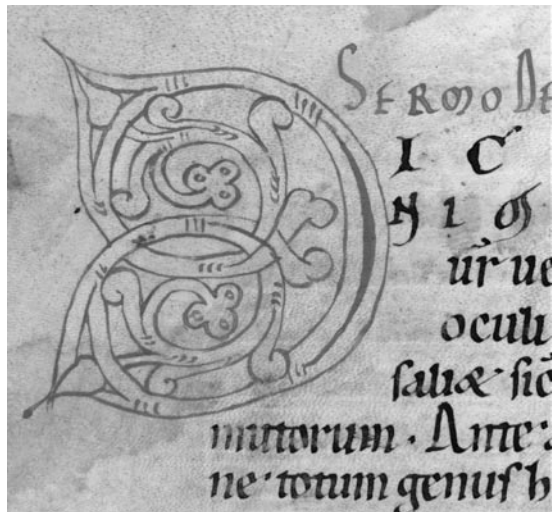 SERMO DE
I C
N I M
ur ue
oculi
saliæ sic̄
mutorum. Ante
ne totum genus h